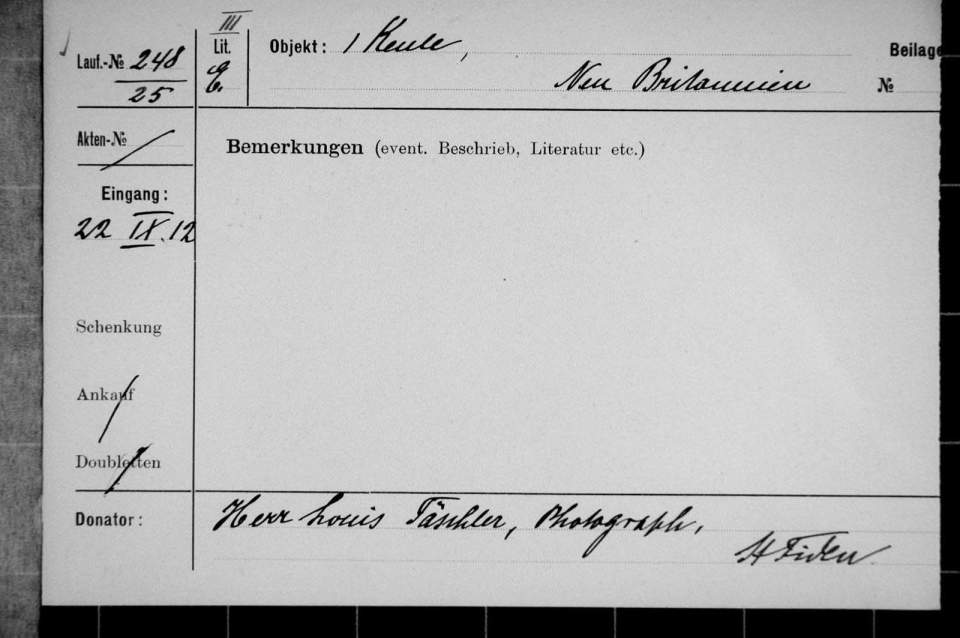 III
Lauf.-№ 248
25
Lit. E.
Objekt: 1 Keule,
Neu Britannien
Beilage
№
Akten-№
Bemerkungen (event. Beschrieb, Literatur etc.)
Eingang:
22 IX. 12
Schenkung
Ankauf
Doubletten
Donator: Herr Louis Täschler, Photograph,
St Fiden